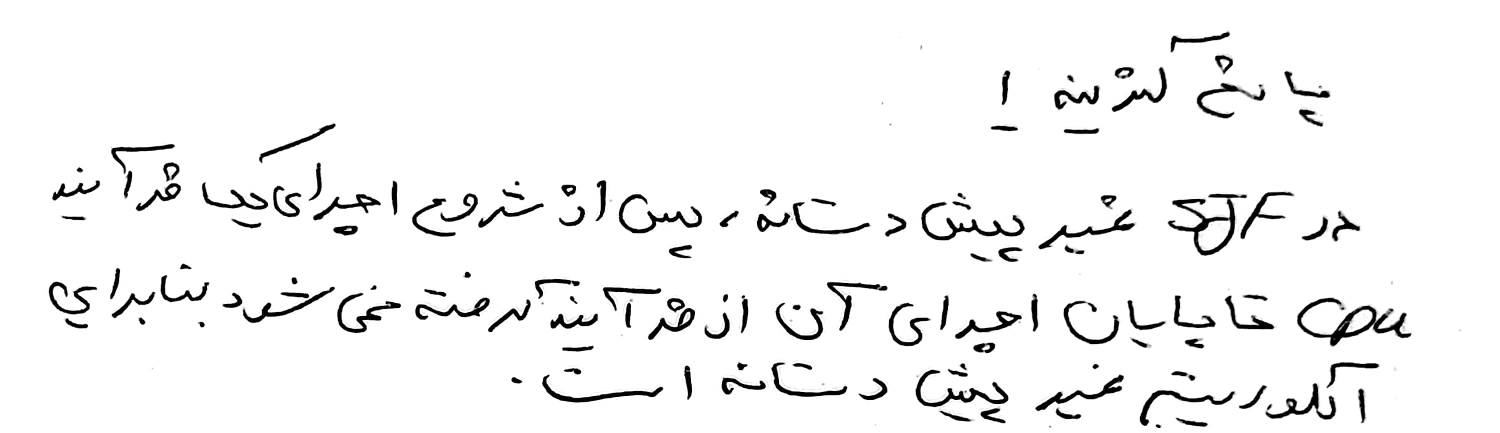 پاسخ گزینه ۱
در SJF غیر پیش دستانه، پس از شروع اجرای یک فرآیند
CPU تا پایان اجرای آن از فرآیند گرفته نمی شود بنابراین
الگوریتم غیر پیش دستانه است.